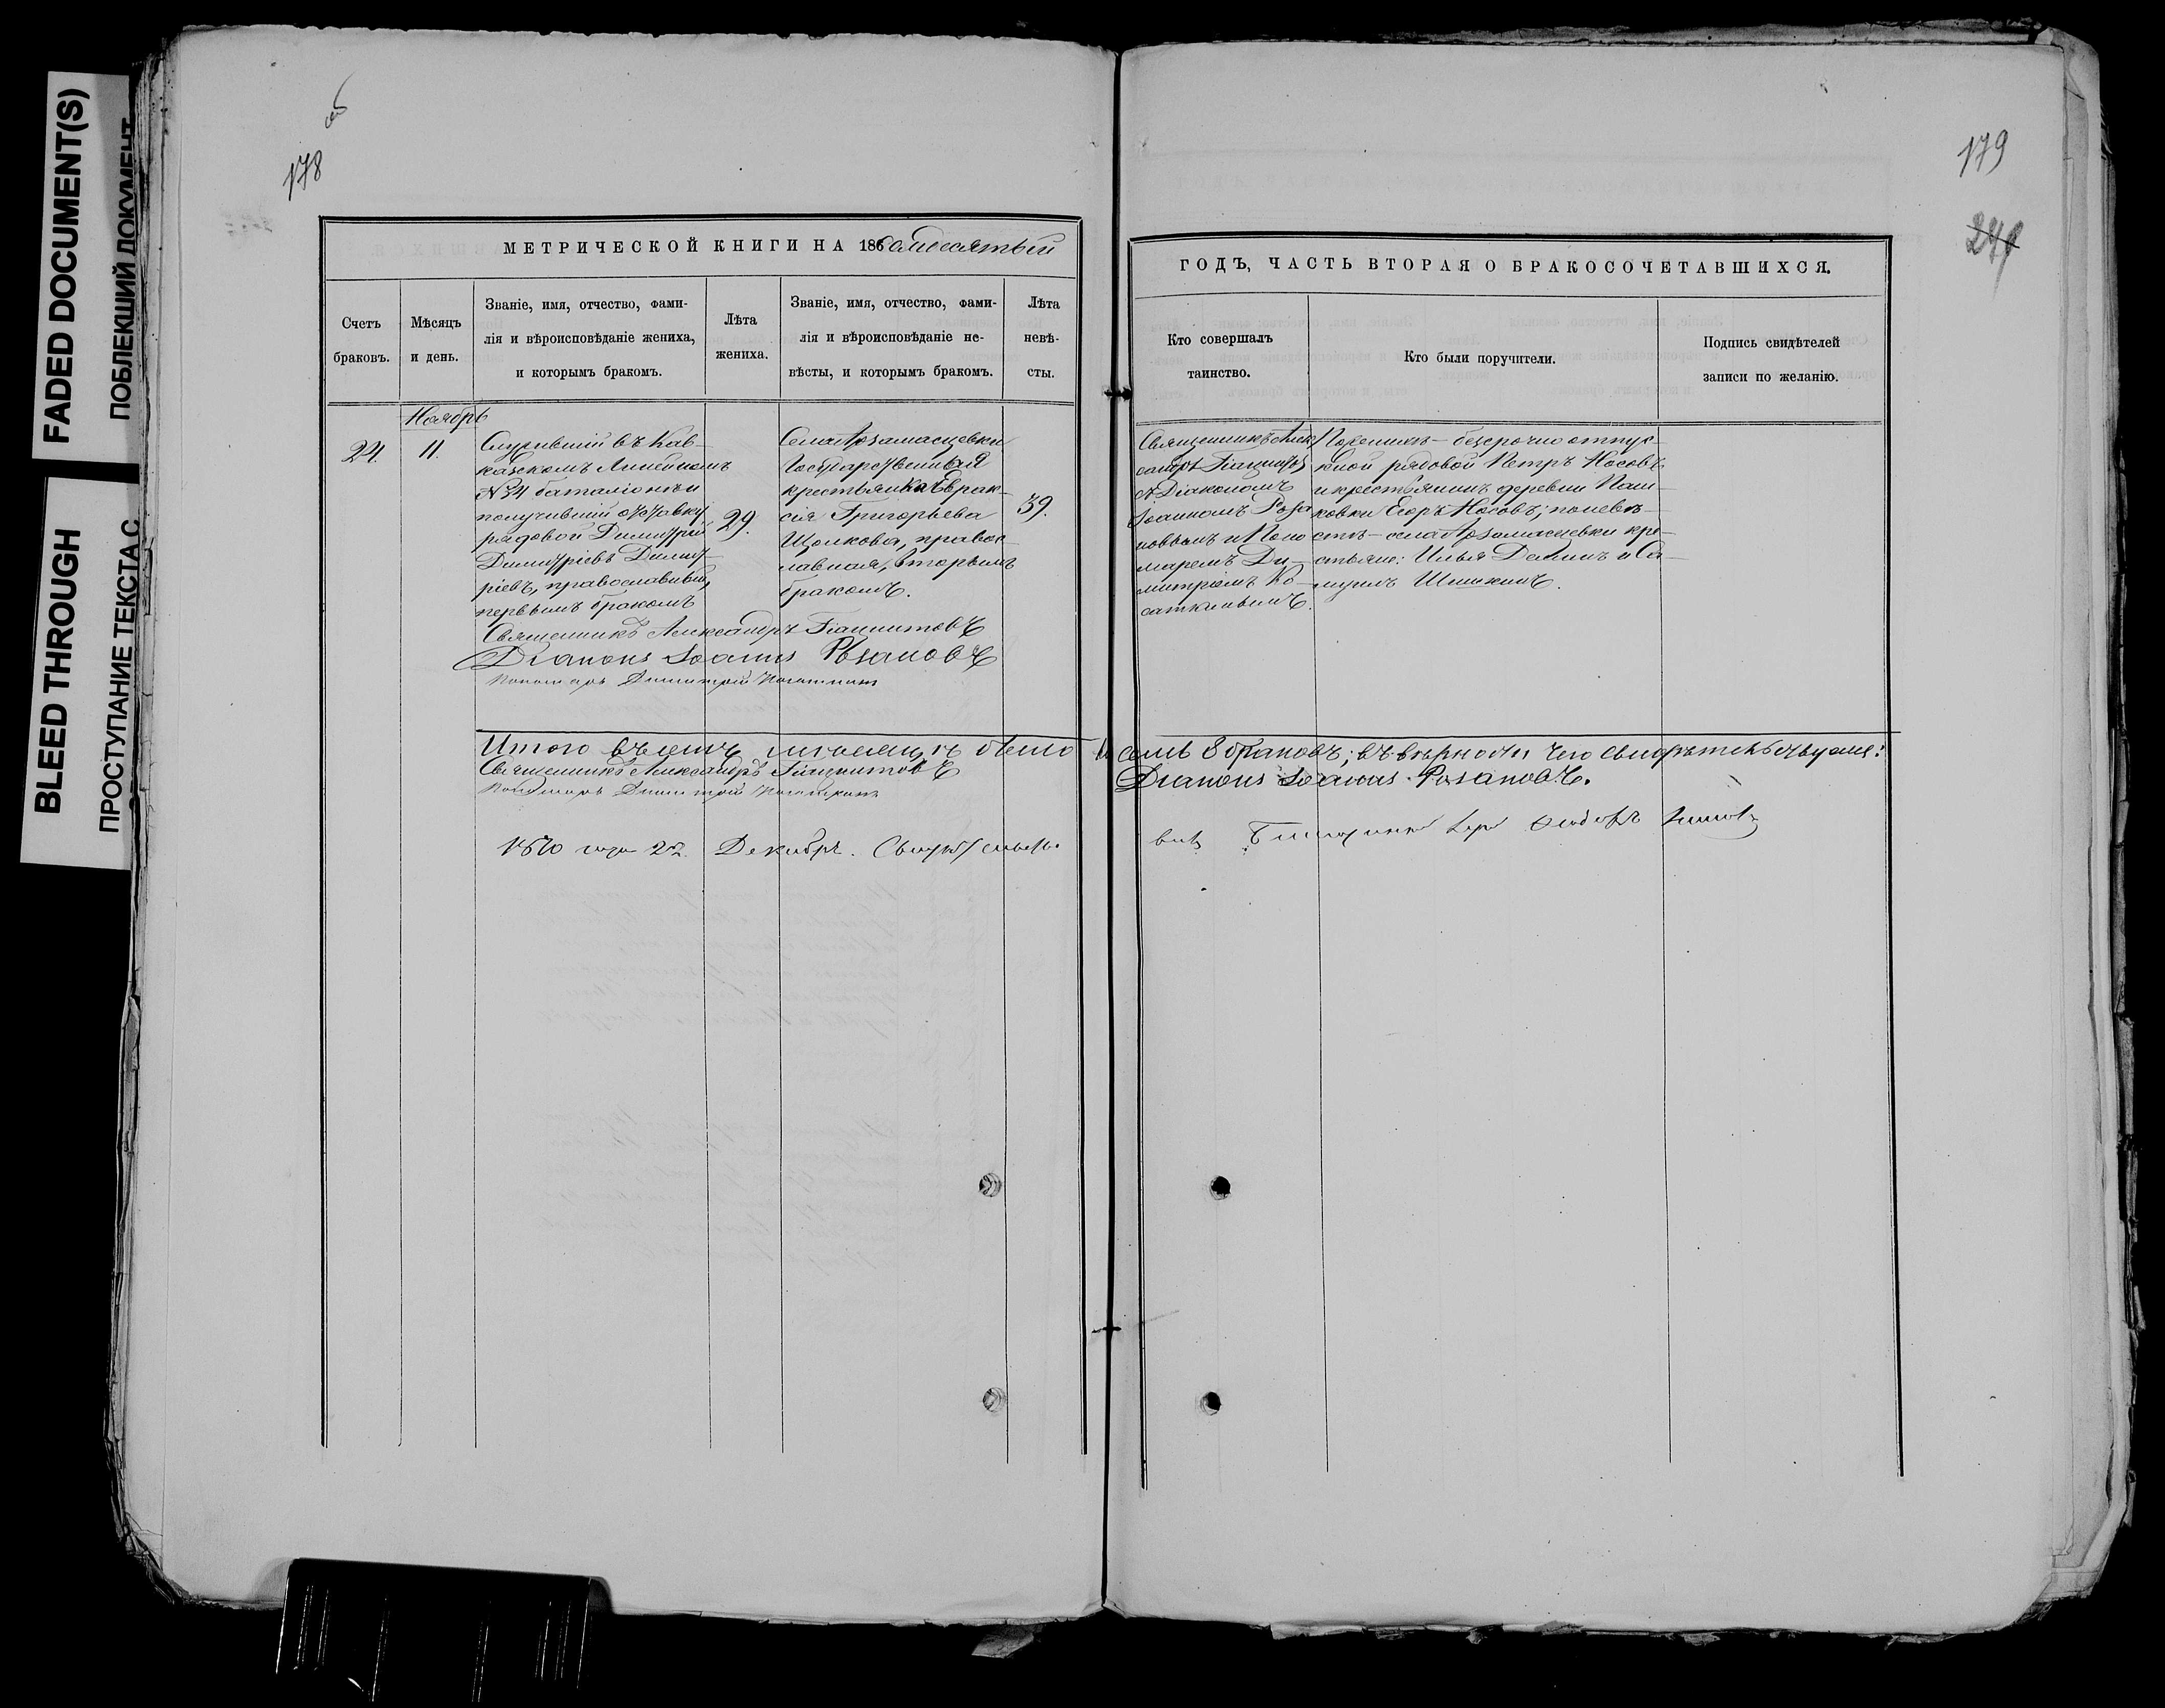 FADED DOCUMENT(S)
ПОБЛЕКШИЙ ДОКУМЕНТ
BLEED THROUGH
ПРОСТУПАНИЕ ТЕКСТА С
178
179
МЕТРИЧЕСКОЙ КНИГИ НА 186 семидесятый
Счетъ браковъ.
Мѣсяцъ и день.
Званіе, имя, отчество, фами-
лія и вѣроисповѣданіе жениха,
и которымъ бракомъ.
Лѣта жениха.
Званіе, имя, отчество, фами-
лія и вѣроисповѣданіе не-
вѣсты, и которымъ бракомъ.
Лѣта невѣ-
сты.
Ноябрь
24.
11.
Служившій въ Кав-
казскомъ Линейномъ
№ 34 баталіонѣ и
получившій отставку
рядовой Димитрій
Димитріевъ Димит-
ріевъ, православный,
первымъ бракомъ
29.
Села Арзамасцевки
Государственная
крестьянка Еврак-
сія Григорьева
Щолкова, правос-
лавная, вторымъ
бракомъ.
39.
Священникъ Александръ Гіацинтовъ
Діаконъ Іоаннъ Розановъ
Пономарь Димитрій
Итого въ семъ мѣсяцѣ было
Священникъ Александръ Гіацинтовъ
Пономарь Димитрій
1870 года 22. Декабря. Свидѣтельст.
ГОДЪ, ЧАСТЬ ВТОРАЯ О БРАКОСОЧЕТАВШИХСЯ.
Кто совершалъ
таинство.
Кто были поручители.
Подпись свидѣтелей
записи по желанію.
Священникъ Алек
сандръ Гіацинтовъ
съ Діакономъ
Іоанномъ Роза
новымъ и Поно
маремъ Ди-
митріемъ Ко-
саткинымъ.
По женихѣ – безсрочно отпус-
кной рядовой Петръ Носовъ
и крестьянинъ деревни Паш-
ковки Егоръ Носовъ; по невѣ-
стѣ – села Арзамасцевки кре-
стьяне: Илья Деминъ и Са-
муилъ Шишкинъ.
семь 8 браковъ; въ вѣрности чего свидѣтельствуемъ:
Діаконъ Іоаннъ Розановъ.